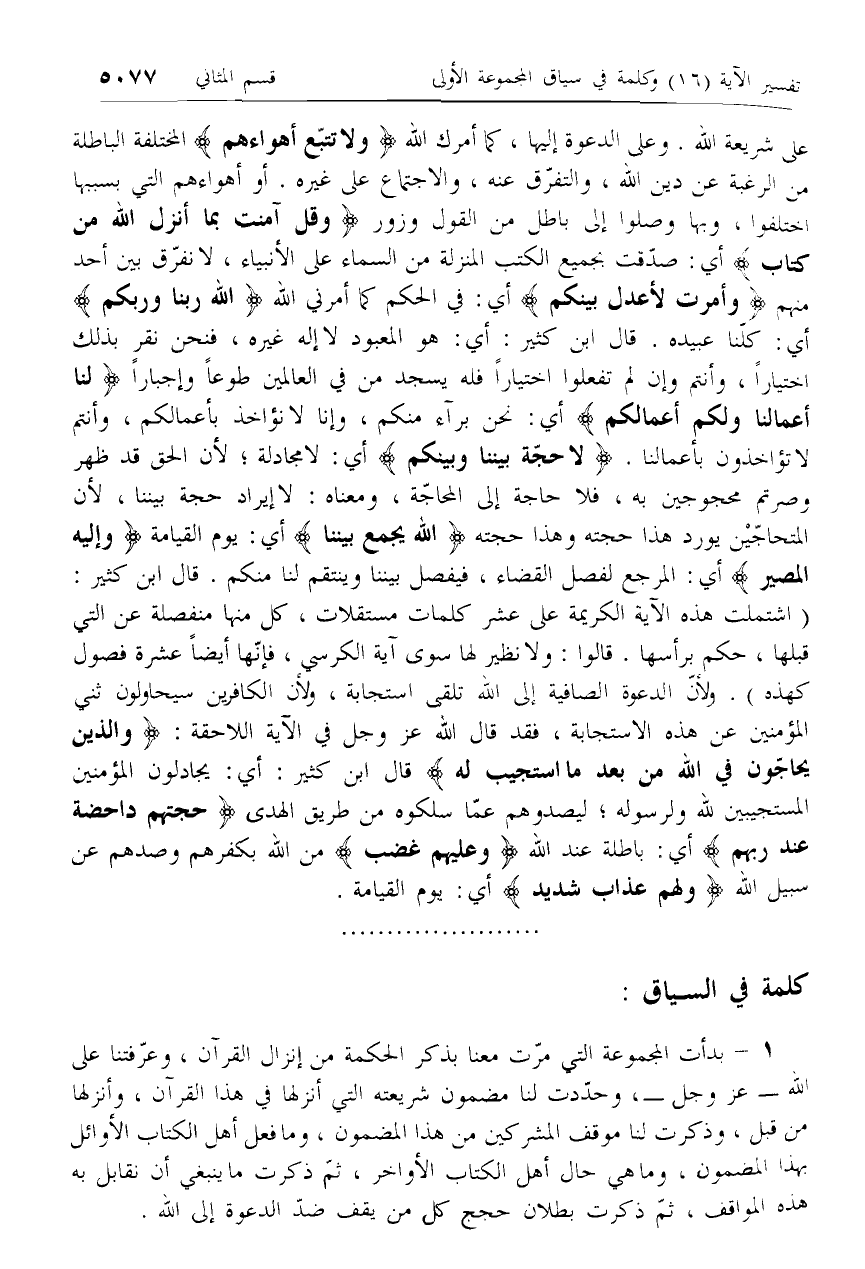 تفسير الآية (١٦) وكلمة في سياق المجموعة الأولى قسم المثاني ٥٠٧٧
على شريعة الله . وعلى الدعوة إليها ، كما أمرك الله ﴿ ولا تتبّع أهواءهم ﴾ المختلفة الباطلة
من الرغبة عن دين الله ، والتفرّق عنه ، والاجتماع على غيره . أو أهواءهم التي بسببها
اختلفوا ، وبها وصلوا إلى باطل من القول وزور ﴿ وقل آمنت بما أنزل الله من
كتاب ﴾ أي : صدّقت بجميع الكتب المنزلة من السماء على الأنبياء ، لا نفرّق بين أحد
منهم ﴿ وأمرت لأعدل بينكم ﴾ أي : في الحكم كما أمرني الله ﴿ الله ربنا وربكم ﴾
أي : كلّنا عبيده . قال ابن كثير : أي : هو المعبود لا إله غيره ، فنحن نقر بذلك
اختياراً ، وأنتم وإن لم تفعلوا اختياراً فله يسجد من في العالمين طوعاً وإجباراً ﴿ لنا
أعمالنا ولكم أعمالكم ﴾ أي : نحن برآء منكم ، وإنا لا نؤاخذ بأعمالكم ، وأنتم
لا تؤاخذون بأعمالنا . ﴿ لا حجّة بيننا وبينكم ﴾ أي : لا مجادلة ؛ لأن الحق قد ظهر
وصرتم محجوجين به ، فلا حاجة إلى المحاجّة ، ومعناه : لا إيراد حجة بيننا ، لأن
المتحاجّيْن يورد هذا حجته وهذا حجته ﴿ الله يجمع بيننا ﴾ أي : يوم القيامة ﴿ وإليه
المصير ﴾ أي : المرجع لفصل القضاء ، فيفصل بيننا وينتقم لنا منكم . قال ابن كثير :
( اشتملت هذه الآية الكريمة على عشر كلمات مستقلات ، كل منها منفصلة عن التي
قبلها ، حكم برأسها . قالوا : ولا نظير لها سوى آية الكرسي ، فإنّها أيضاً عشرة فصول
كهذه ) . ولأنّ الدعوة الصافية إلى الله تلقى استجابة ، ولأن الكافرين سيحاولون ثني
المؤمنين عن هذه الاستجابة ، فقد قال الله عز وجل في الآية اللاحقة : ﴿ والذين
يحاجّون في الله من بعد ما استجيب له ﴾ قال ابن كثير : أي : يجادلون المؤمنين
المستجيبين لله ولرسوله ؛ ليصدوهم عمّا سلكوه من طريق الهدى ﴿ حجتهم داحضة
عند ربهم ﴾ أي : باطلة عند الله ﴿ وعليهم غضب ﴾ من الله بكفرهم وصدهم عن
سبيل الله ﴿ ولهم عذاب شديد ﴾ أي : يوم القيامة .
......................
كلمة في السياق :
١ – بدأت المجموعة التي مرّت معنا بذكر الحكمة من إنزال القرآن ، وعرّفتنا على
الله – عز وجل – ، وحدّدت لنا مضمون شريعته التي أنزلها في هذا القرآن ، وأنزلها
من قبل ، وذكرت لنا موقف المشركين من هذا المضمون ، وما فعل أهل الكتاب الأوائل
بهذا المضمون ، وما هي حال أهل الكتاب الأواخر ، ثمّ ذكرت ما ينبغي أن نقابل به
هذه المواقف ، ثمّ ذكرت بطلان حجج كل من يقف ضدّ الدعوة إلى الله .